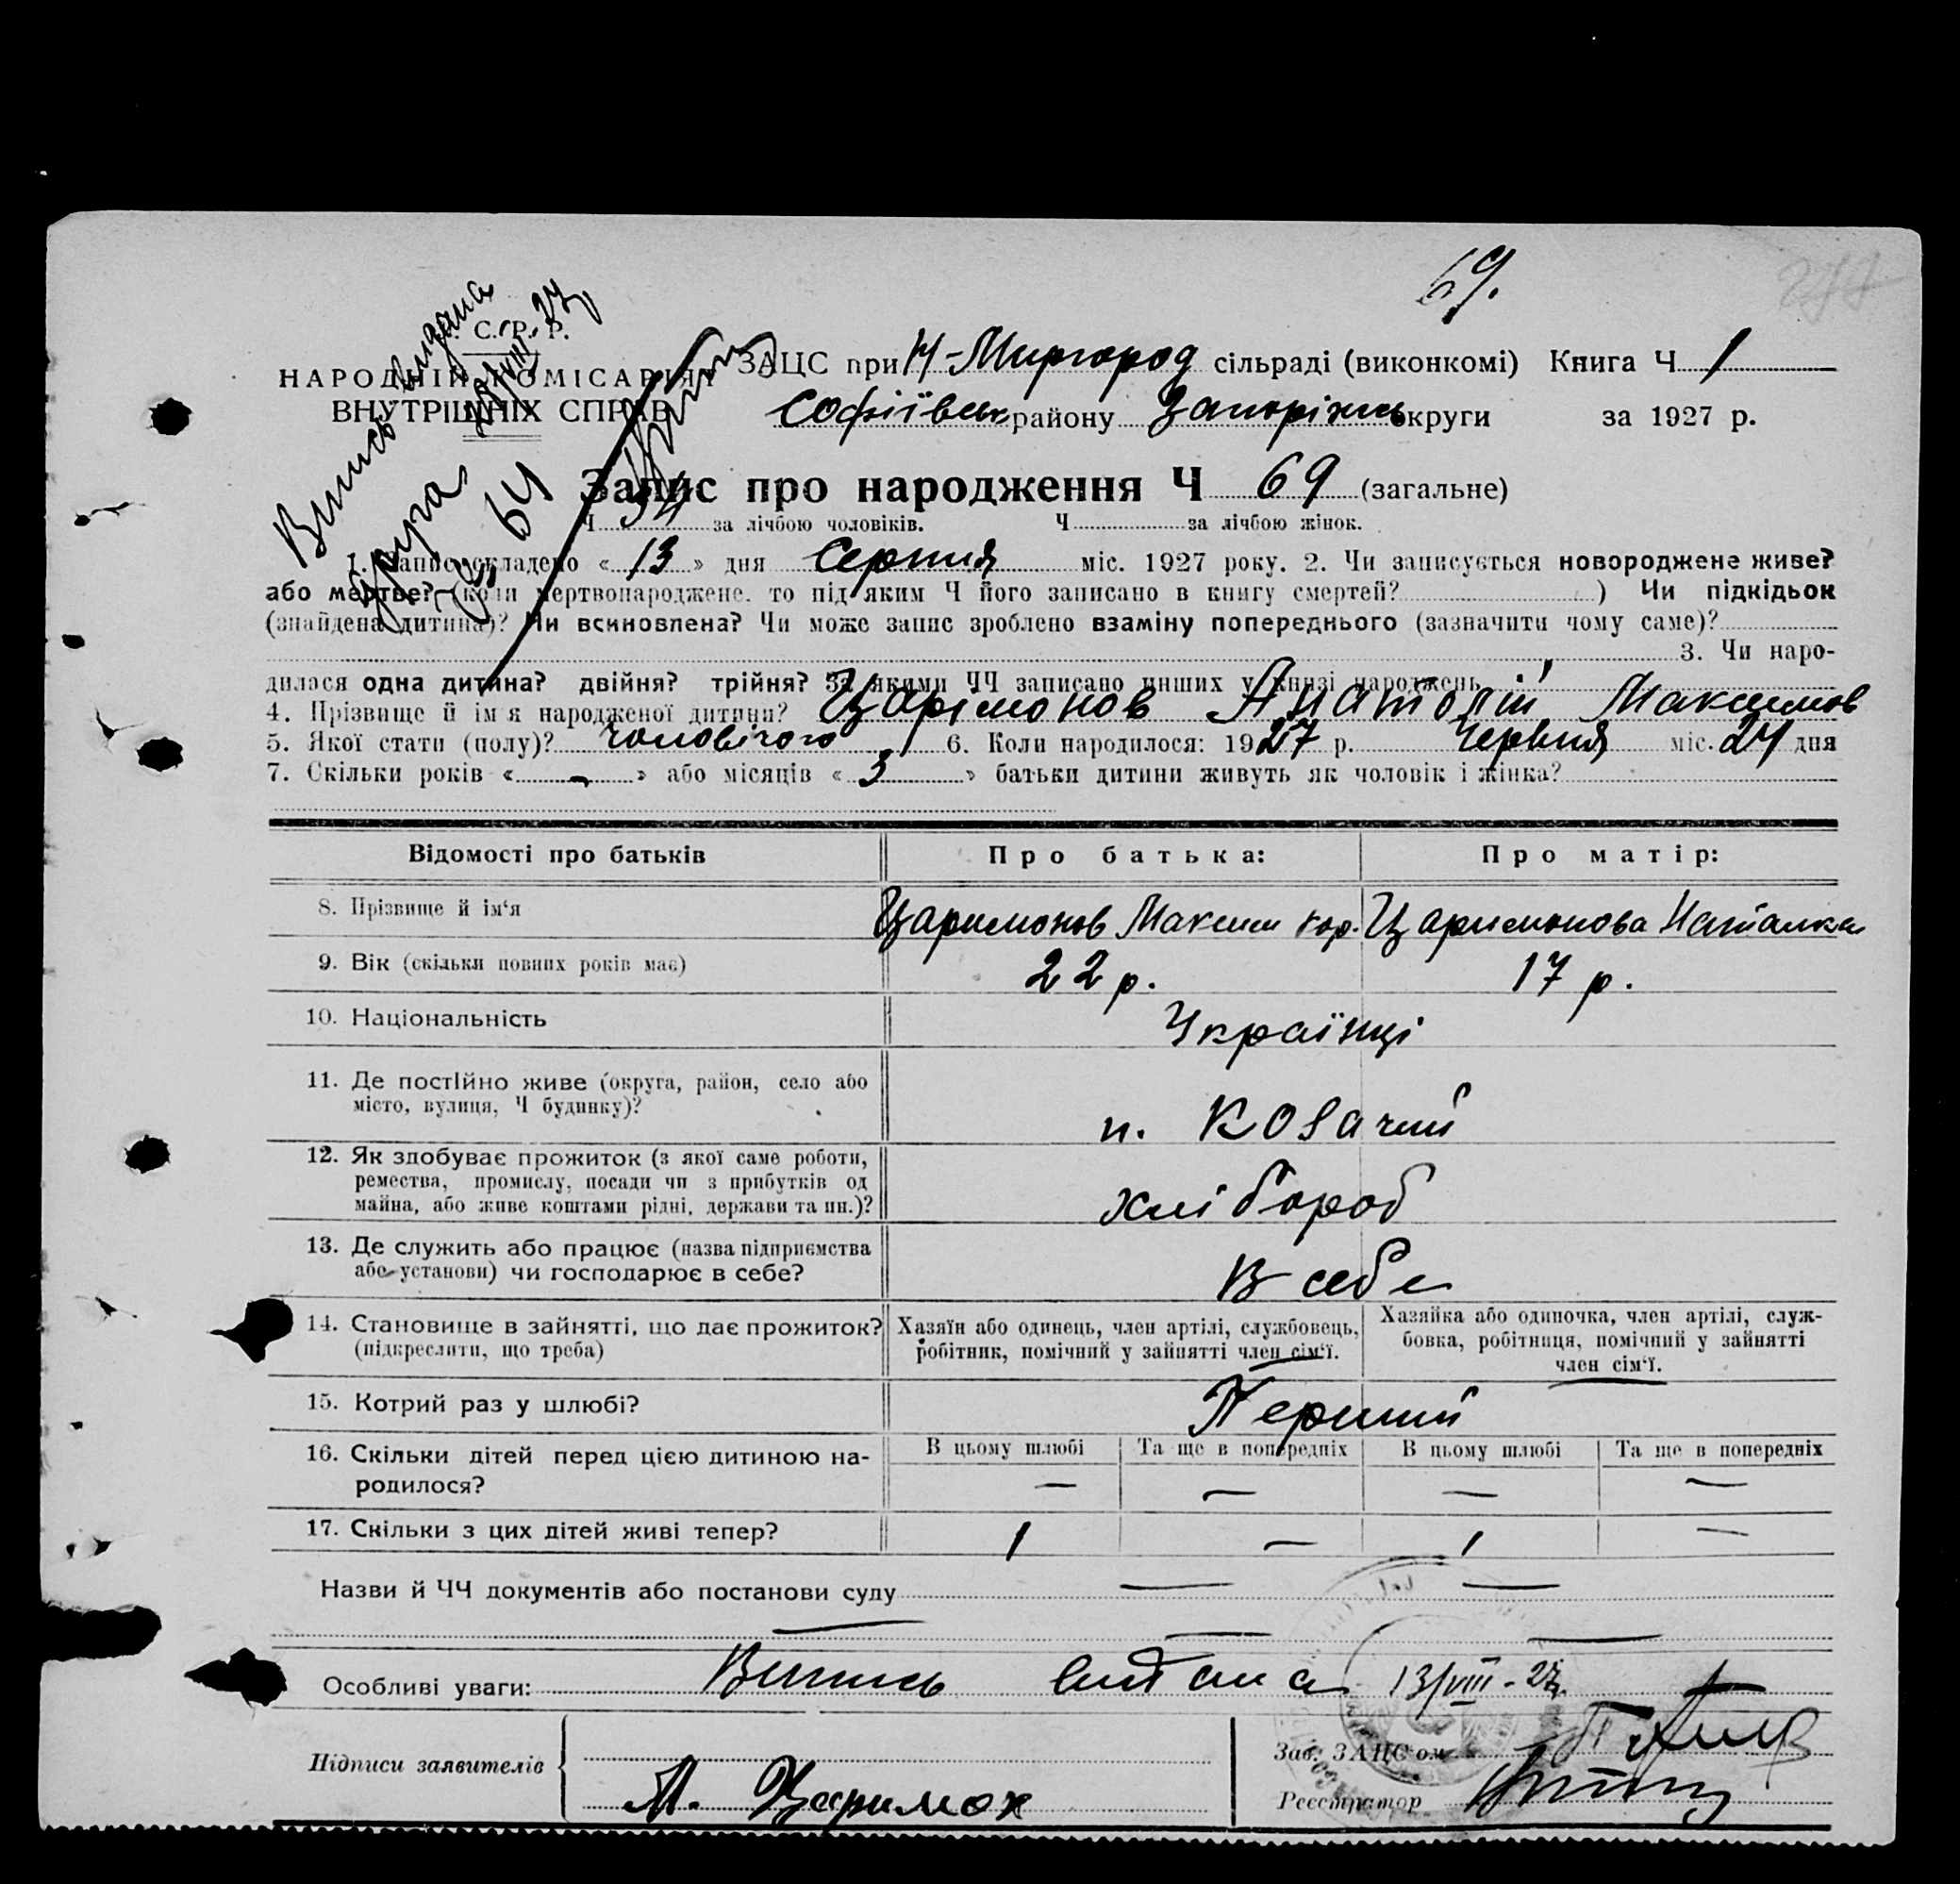 69.
С. Р. Р.
НАРОДНІЙ КОМІСАРІЯТ
ВНУТРІШНІХ СПРАВ
Впись видана
Друга
ЗАЦС при Н-Миргород сільраді (виконкомі) Книга Ч 1
Софіївськ району Запоріжськ округи за 1927 р.
Запис про народження Ч 69 (загальне)
Ч 34 за лічбою чоловіків. Ч за лічбою жінок.
1. Запис складено « 13 » дня Серпня міс. 1927 року. 2. Чи записується новороджене живе?
або мертве? (коли мертвонароджене, то під яким Ч його записано в книгу смертей? ) Чи підкідьок
(знайдена дитина)? Чи всиновлена? Чи може запис зроблено взаміну попереднього (зазначити чому саме)?
3. Чи наро-
дилася одна дитина? двійня? трійня? За якими ЧЧ записано инших у книзі народжень
4. Прізвище й ім я народженої дитини? Царімонов Анатолій Максимов
5. Якої стати (полу)? чоловічого 6. Коли народилося: 1927 р. Червня міс. 24 дня
7. Скільки років « - » або місяців « 3 » батьки дитини живуть як чоловік і жінка?
Відомості про батьків Про батька: Про матір:
8. Прізвище й ім'я Царимонов Максим Кор. Царимонова Наталка
9. Вік (скільки повних років має) 22 р. 17 р.
10. Національність Українці
11. Де постійно живе (округа, район, село або
місто, вулиця, Ч будинку)? п. Козачий
12. Як здобуває прожиток (з якої саме роботи,
ремества, промислу, посади чи з прибутків од
майна, або живе коштами рідні, держави та ин.)? хлібороб
13. Де служить або працює (назва підприємства
або установи) чи господарює в себе? В себе
14. Становище в зайнятті, що дає прожиток?
(підкреслити, що треба)
Хазяїн або одинець, член артілі, службовець,
робітник, помічний у зайнятті член сім'ї.
Хазяйка або одиночка, член артілі, служ-
бовка, робітниця, помічний у зайнятті
член сім'ї.
15. Котрий раз у шлюбі? Перший
16. Скільки дітей перед цією дитиною на-
родилося?
В цьому шлюбі Та ще в попередніх В цьому шлюбі Та ще в попередніх
— — — —
17. Скільки з цих дітей живі тепер? 1 — 1 —
Назви й ЧЧ документів або постанови суду — —
— — —
Особливі уваги: Впись видана 13/VIII-27
Підписи заявителів
М. Царимон
Зав. ЗАЦС'ом
Реєстратор